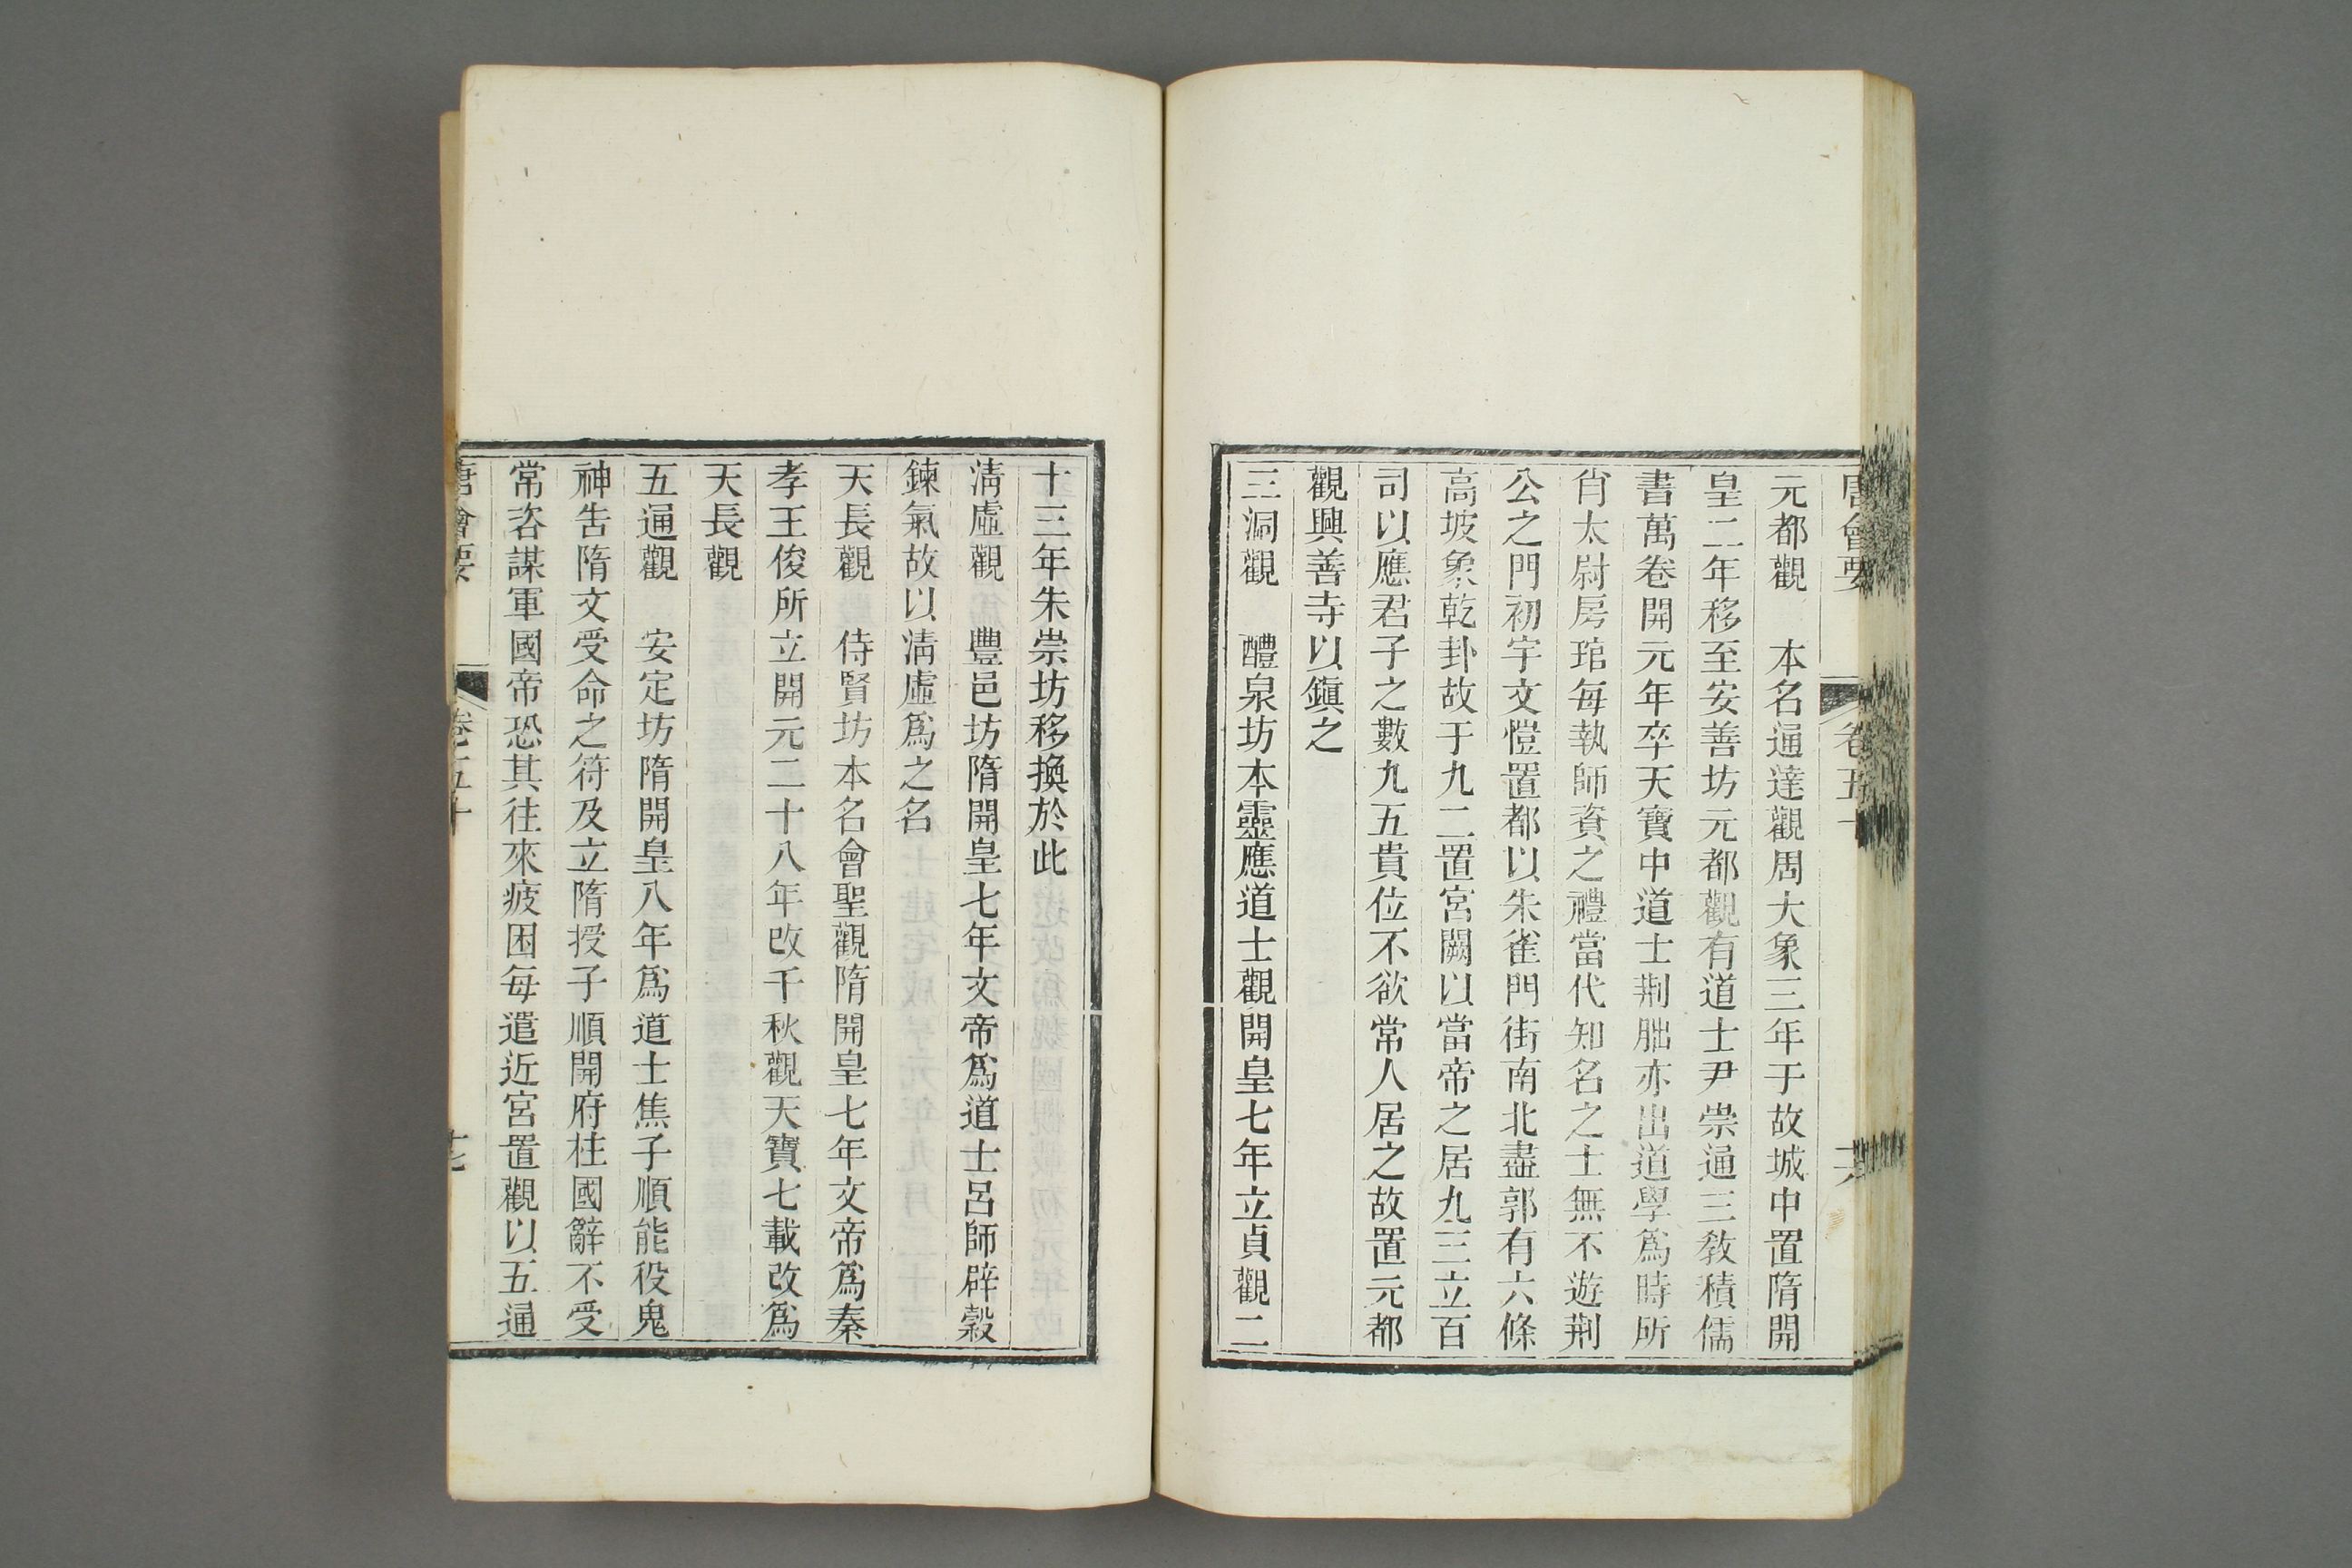 唐會要 卷五十 十六
元都觀 本名通達觀周大象三年于故城中置隋開
皇二年移至安善坊元都觀有道士尹崇通三教積儒
書萬卷開元年卒天寶中道士荆朏亦出道學爲時所
尚太尉房琯每執師資之禮當代知名之士無不遊荆
公之門初宇文愷置都以朱雀門街南北盡郭有六條
高坡象乾卦故于九二置宮闕以當帝之居九三立百
司以應君子之數九五貴位不欲常人居之故置元都
觀興善寺以鎭之
三洞觀 醴泉坊本靈應道士觀開皇七年立貞觀二
十三年朱崇坊移換於此
淸虛觀 豐邑坊隋開皇七年文帝爲道士呂師辟穀
鍊氣故以淸虛爲之名
天長觀 侍賢坊本名會聖觀隋開皇七年文帝爲秦
孝王俊所立開元二十八年改千秋觀天寶七載改爲
天長觀
五通觀 安定坊隋開皇八年爲道士焦子順能役鬼
神告隋文受命之符及立隋授子順開府柱國辭不受
常咨謀軍國帝恐其往來疲困每遣近宮置觀以五通
唐會要 卷五十 十七